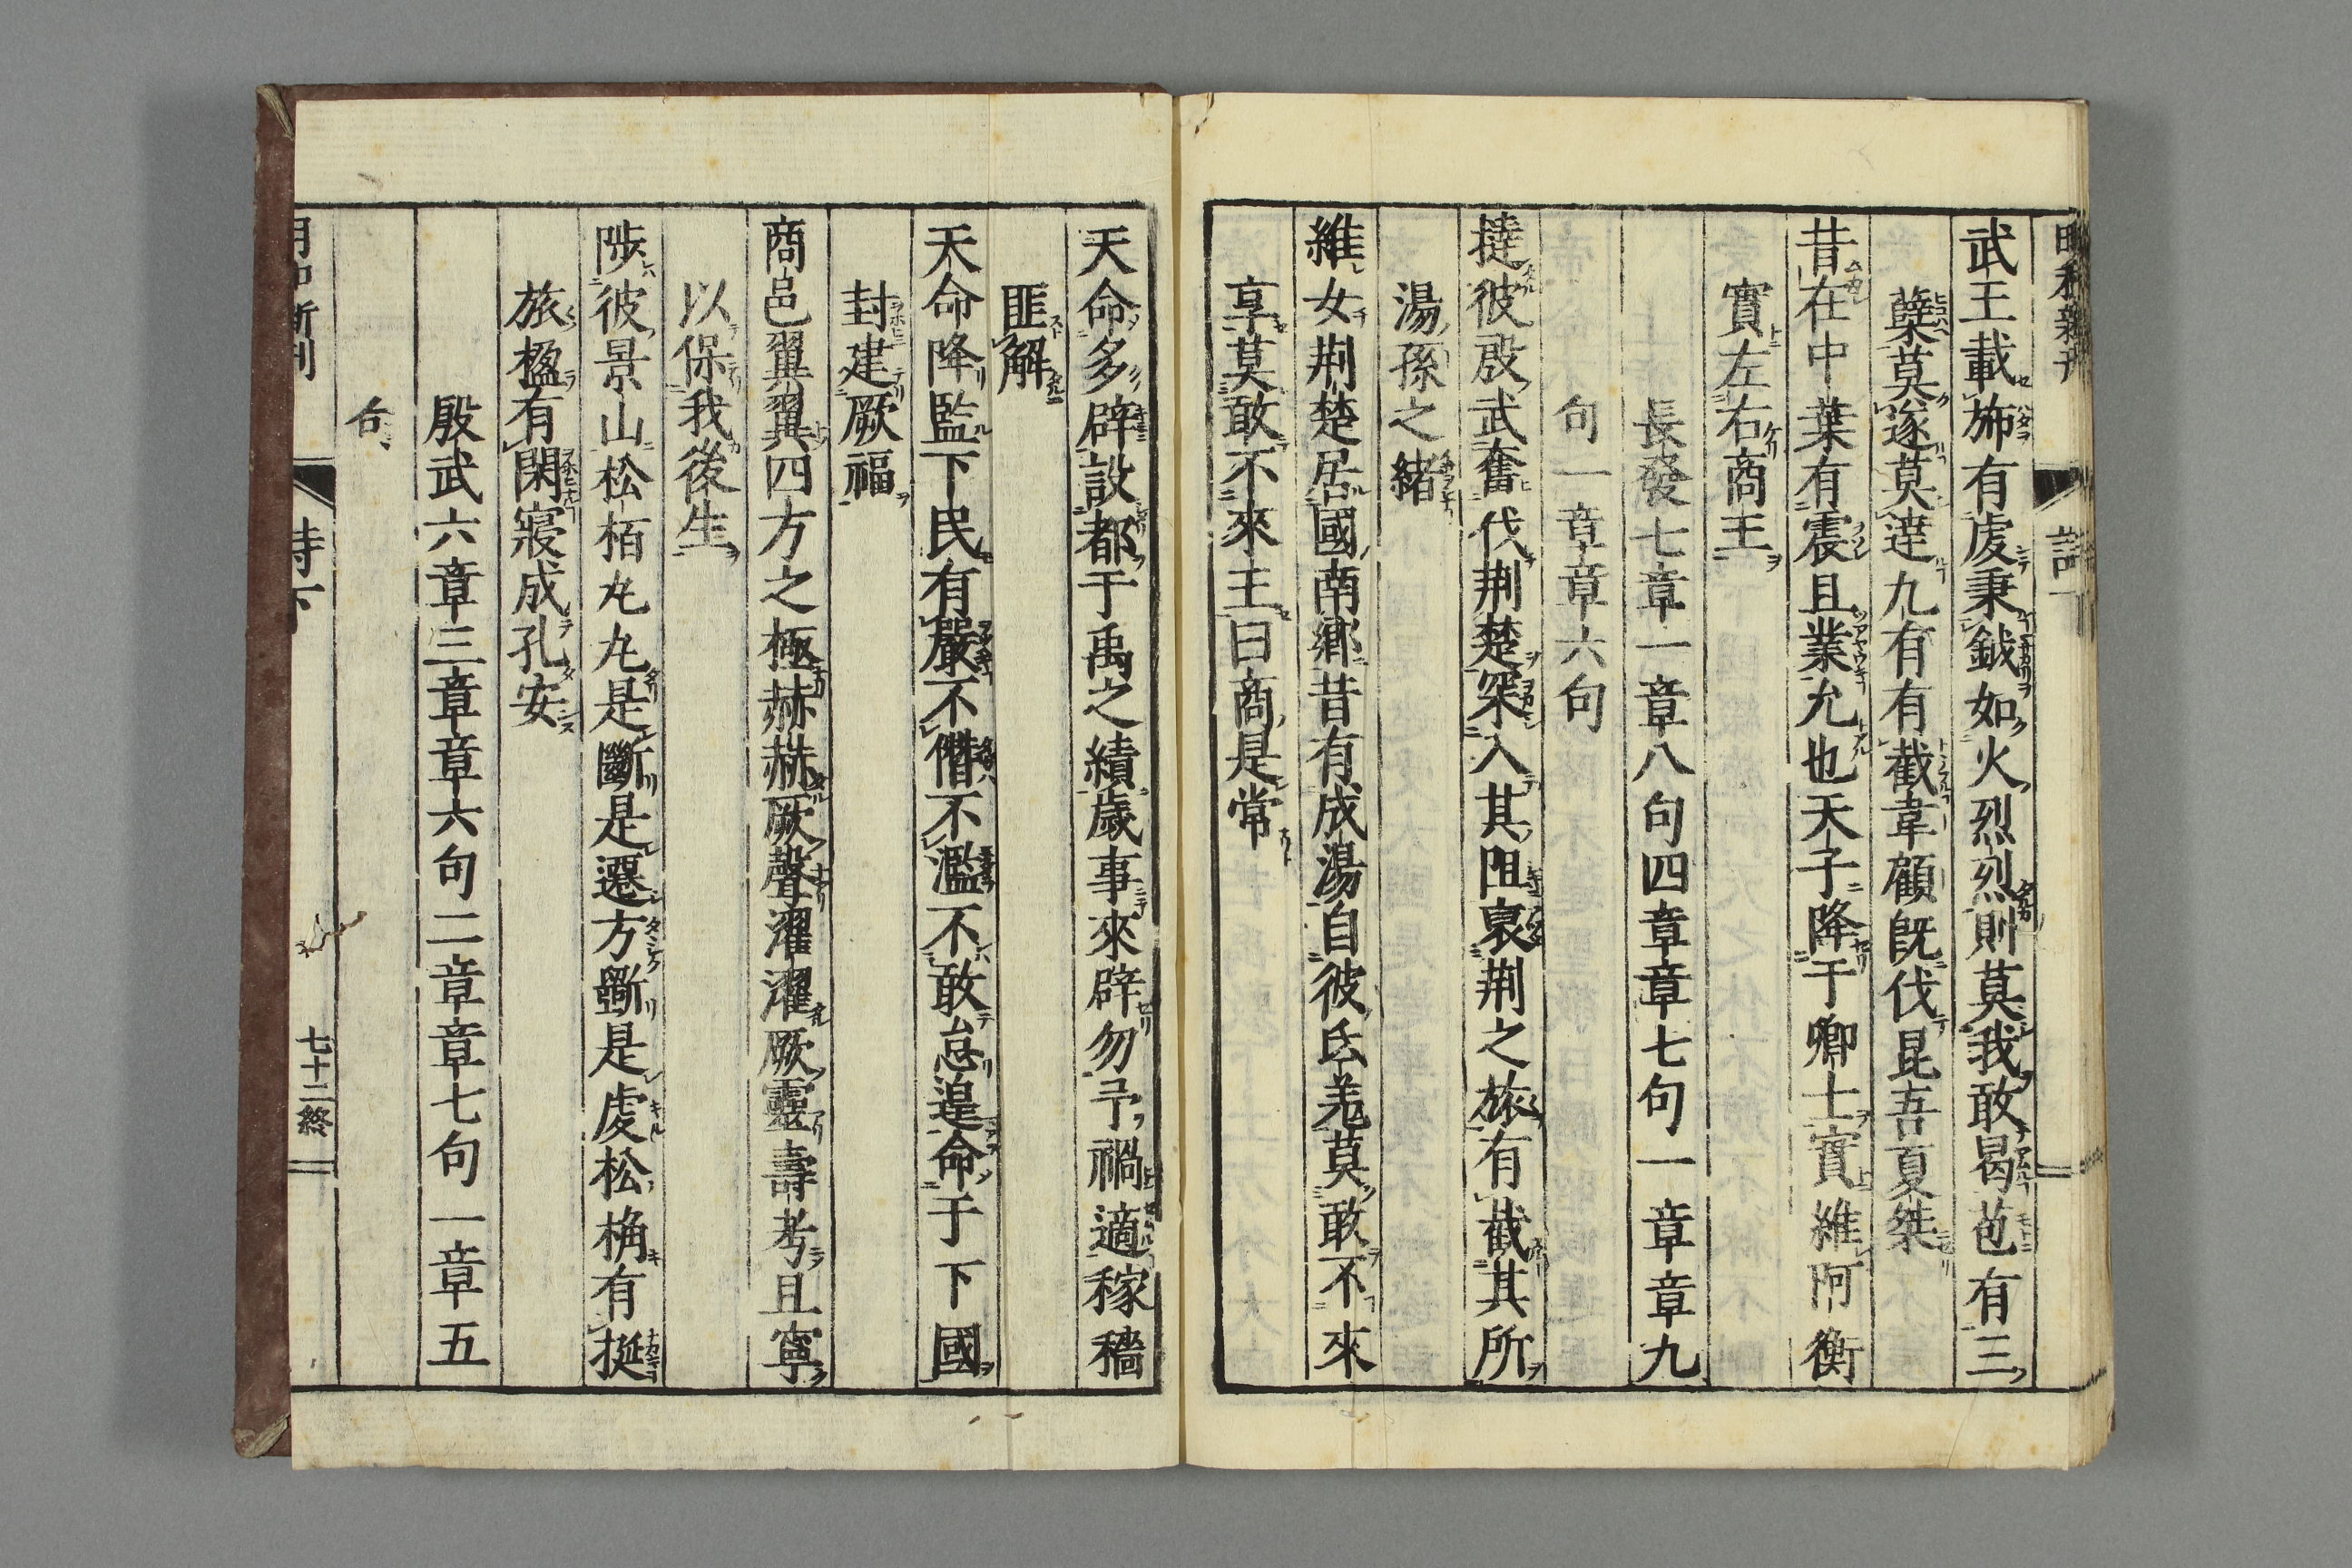 武王載斾有虔秉鉞如火烈烈則莫我敢曷苞有三
蘖莫遂莫達九有有截韋顧既伐昆吾夏桀
昔在中葉有震且業允也天子降于卿士實維阿衡
實左右商王
長發七章一章八句四章章七句一章章九
句一章章六句
撻彼殷武奮伐荆楚罙入其阻裒荆之旅有截其所
湯孫之緒
維女荆楚居國南鄉昔有成湯自彼氐羌莫敢不來
享莫敢不來王曰商是常
天命多辟設都于禹之績歲事來辟勿予禍適稼穡
匪解
天命降監下民有嚴不僭不濫不敢怠遑命于下國
封建厥福
商邑翼翼四方之極赫赫厥聲濯濯厥靈壽考且寧
以保我後生
陟彼景山松栢丸丸是斷是遷方斲是虔松桷有挻
旅楹有閑寢成孔安
殷武六章三章章六句二章章七句一章五
句
詩下
七十二終